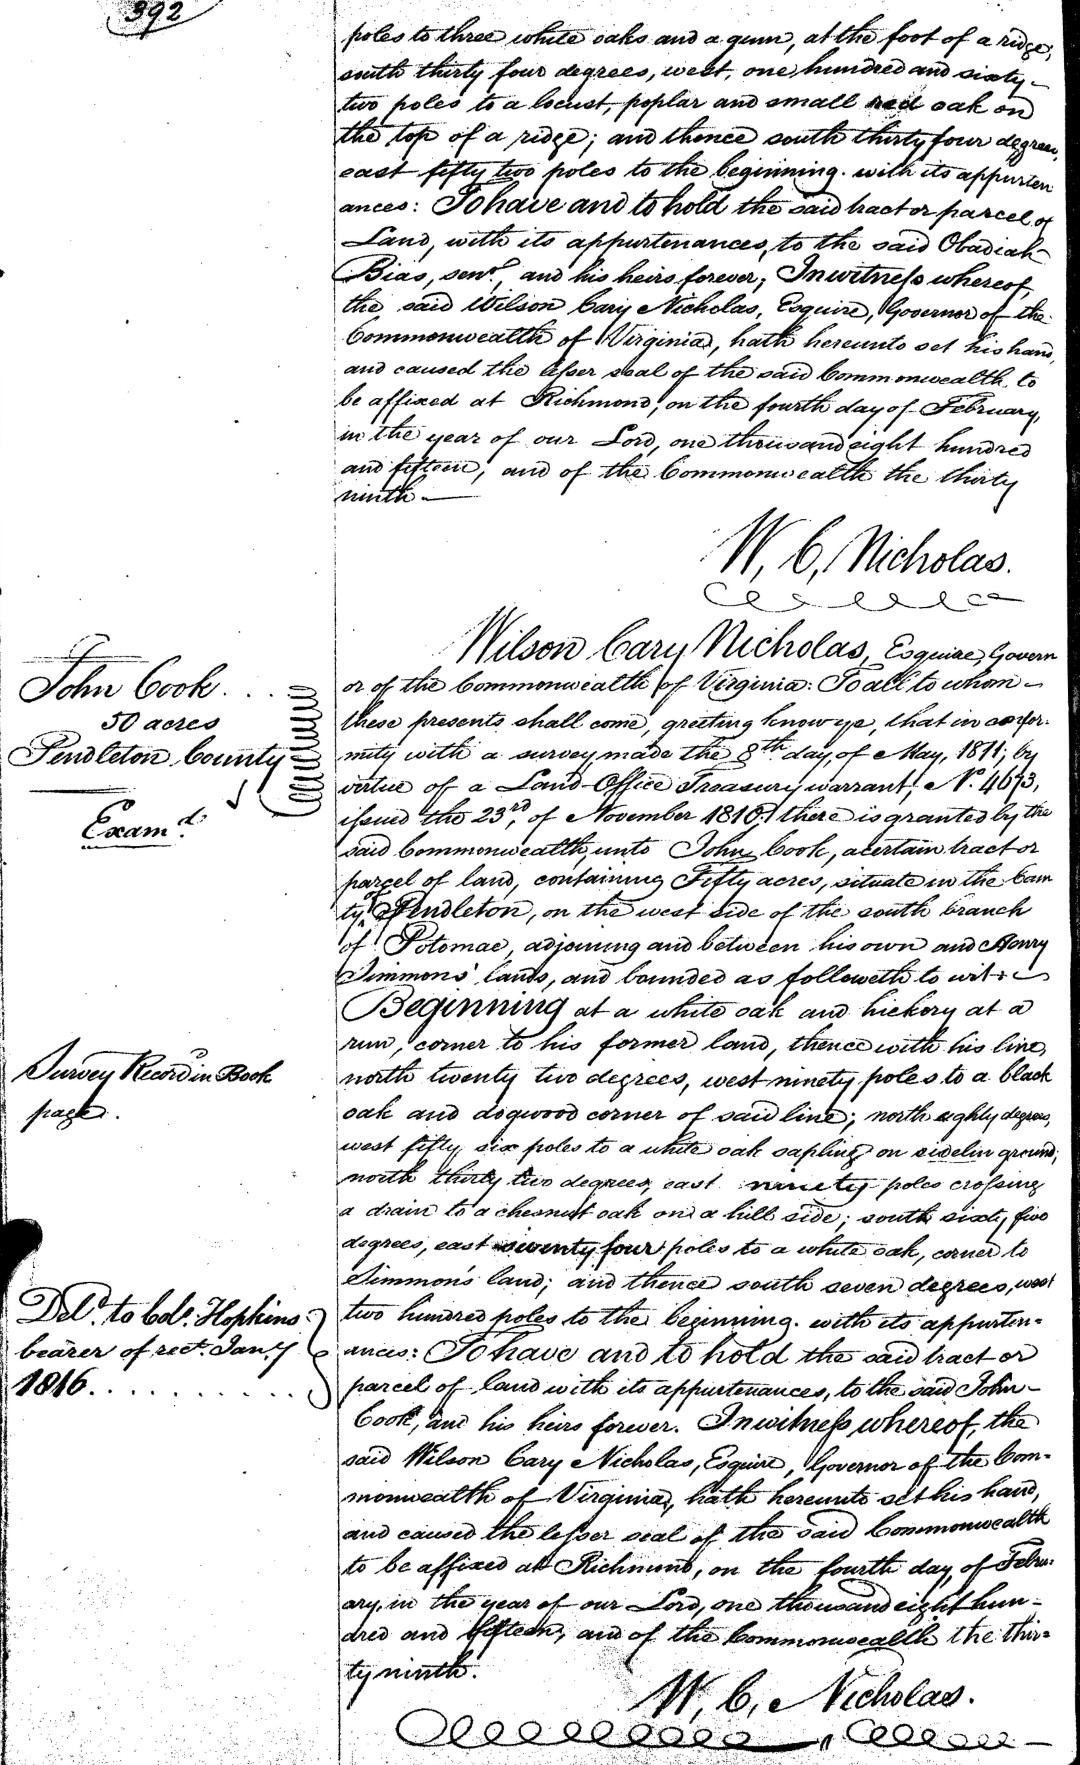 392
poles to three white oaks and a gum, at the foot of a ridge,
south thirty four degrees, west, one hundred and sixty-
two poles to a locust, poplar and small red oak on
the top of a ridge; and thence south thirty four degrees,
east fifty two poles to the beginning. with its appurten
ances: To have and to hold the said tract or parcel of
Land, with its appurtenances, to the said Obadiah
Bias, senr, and his heirs forever; In witness whereof,
the said Wilson Cary Nicholas, Esquire, Governor of the
Commonwealth of Virginia, hath hereunto set his hand,
and caused the lesser seal of the said Commonwealth to
be affixed at Richmond, on the fourth day of February,
in the year of our Lord, one thousand eight hundred
and fifteen, and of the Commonwealth the thirty
ninth.—
W. C. Nicholas.
John Cook....
50 acres
Pendleton County
Examd.
Wilson Cary Nicholas, Esquire, Govern
or of the Commonwealth of Virginia: To all to whom-
these presents shall come, greeting know ye, that in confor-
mity with a survey made the 8th day, of May, 1811; by
virtue of a Land Office Treasury warrant, No. 4673,
issued the 23rd, of November 1810; there is granted by the
said Commonwealth, unto John Cook, a certain tract or
parcel of land, containing Fifty acres, situate in the Coun
ty of Pendleton, on the west side of the south branch
of Potomac, adjoining and between his own and Henry
Simmons' lands, and bounded as followeth to wit:
Beginning at a white oak and hickory at a
run, corner to his former land, thence with his line,
north twenty two degrees, west ninety poles to a black
oak and dogwood corner of said line; north eighty degrees,
west fifty six poles to a white oak sapling on sidelin ground;
north thirty two degrees, east ninety poles crossing
a drain to a chesnut oak on a hill side; south sixty five
degrees, east seventy four poles to a white oak, corner to
Simmon's land; and thence south seven degrees, west
two hundred poles to the beginning. with its appurten=
ances: To have and to hold the said tract or
parcel of land with its appurtenances, to the said John-
Cook, and his heirs forever. In witness whereof, the
said Wilson Cary Nicholas, Esquire, Governor of the Com=
monwealth of Virginia, hath hereunto set his hand,
and caused the lesser seal of the said Commonwealth
to be affixed at Richmond, on the fourth day, of Febru=
ary, in the year of our Lord, one thousand eight hun=
dred and fifteen, and of the Commonwealth the thir=
ty ninth.
W. C. Nicholas.
Survey Record in Book
page.
Deld. to Colo. Hopkins
bearer of rect. Jany
1816..........